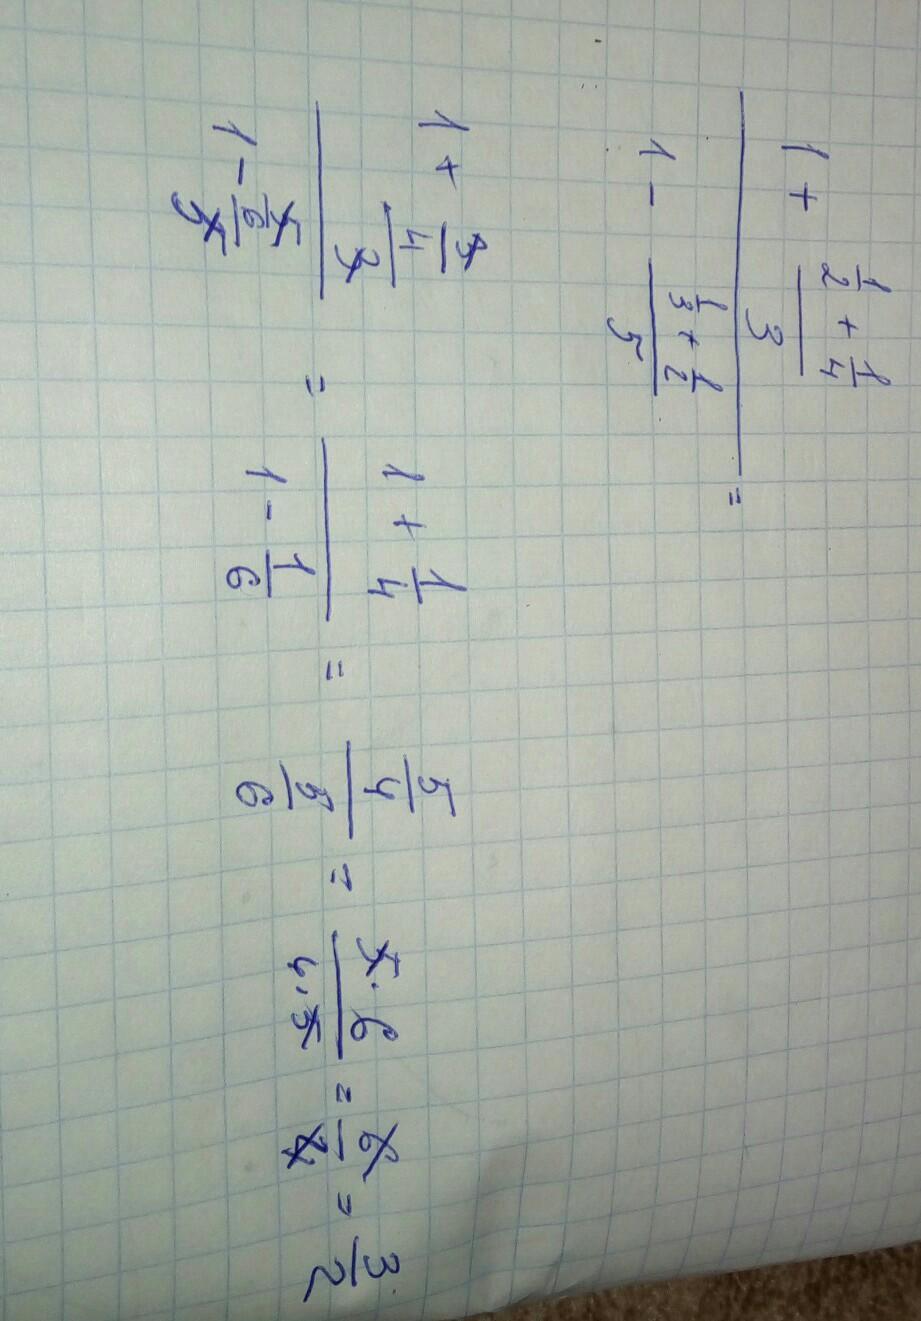 \frac{1 + \frac{\frac{1}{2} + \frac{1}{4}}{3}}{1 - \frac{\frac{1}{3} + \frac{1}{2}}{5}} =
\frac{1 + \frac{\frac{3}{4}}{3}}{1 - \frac{\frac{5}{6}}{5}} = \frac{1 + \frac{1}{4}}{1 - \frac{1}{6}} = \frac{\frac{5}{4}}{\frac{5}{6}} = \frac{5 \cdot 6}{4 \cdot 5} = \frac{6}{4} = \frac{3}{2}